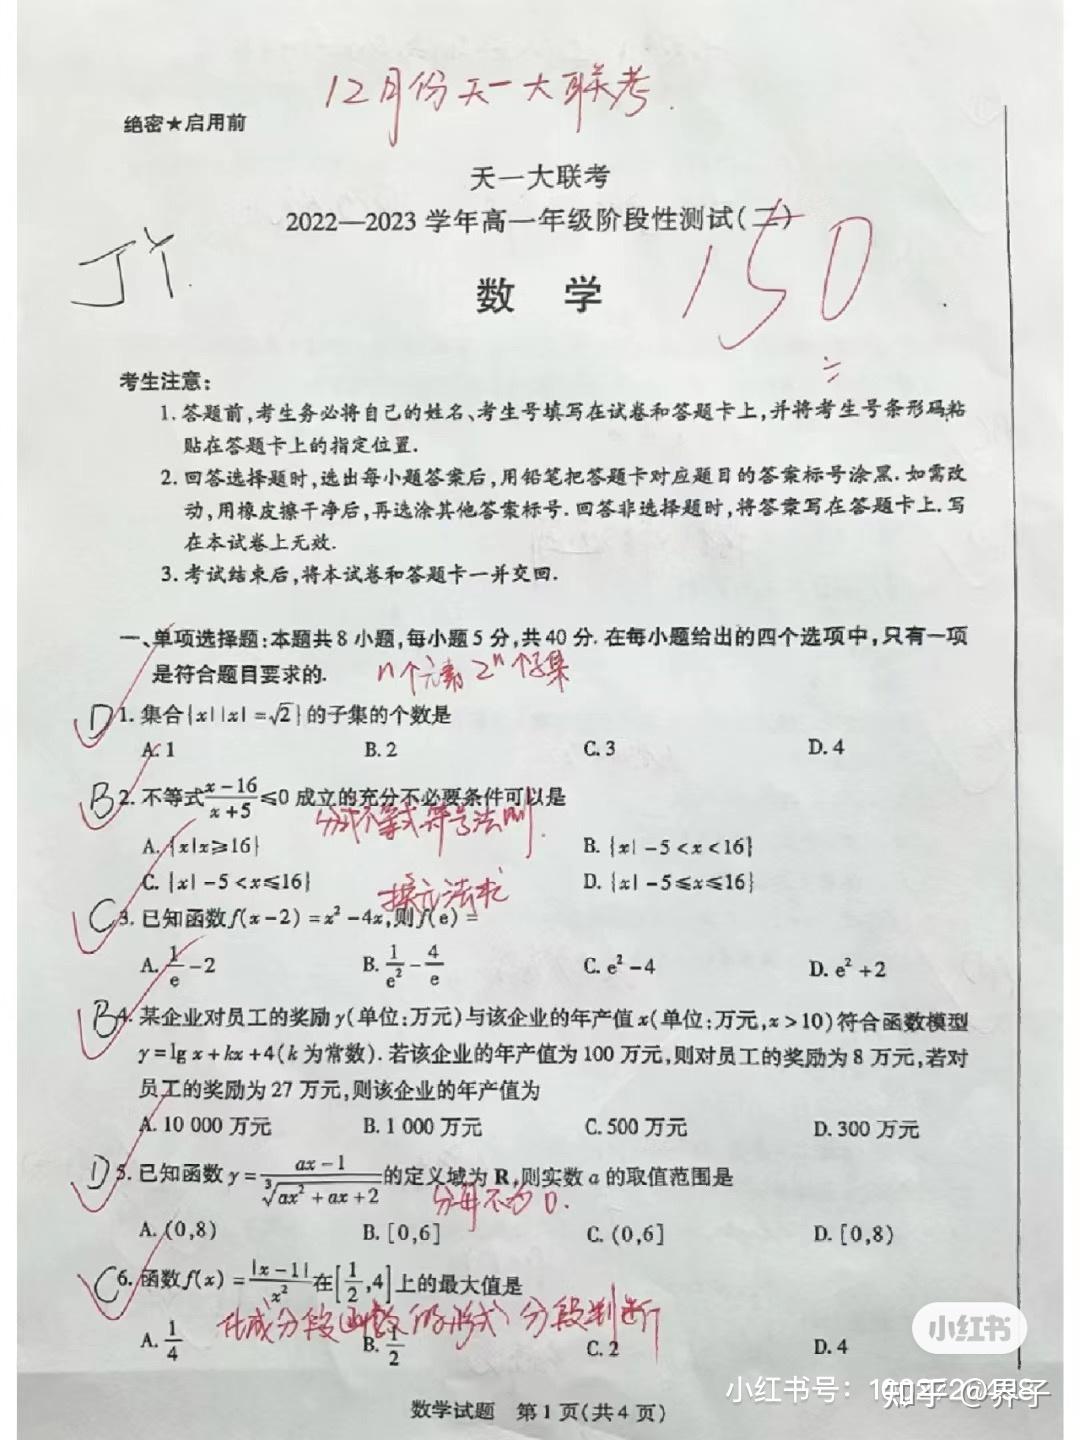 12月份天一大联考.
绝密★启用前
天一大联考
2022—2023 学年高一年级阶段性测试(二)
JY.
数 学
150
考生注意:
1.答题前,考生务必将自己的姓名、考生号填写在试卷和答题卡上,并将考生号条形码粘
贴在答题卡上的指定位置.
2.回答选择题时,选出每小题答案后,用铅笔把答题卡对应题目的答案标号涂黑.如需改
动,用橡皮擦干净后,再选涂其他答案标号.回答非选择题时,将答案写在答题卡上.写
在本试卷上无效.
3.考试结束后,将本试卷和答题卡一并交回.
一、单项选择题:本题共8小题,每小题5分,共40分.在每小题给出的四个选项中,只有一项
是符合题目要求的.
n个元素 2ⁿ个子集
D 1.集合{x||x|=√2}的子集的个数是
A.1 B.2 C.3 D.4
B 2.不等式(x-16)/(x+5)≤0 成立的充分不必要条件可以是
分式不等式符号法则.
A.{x|x≥16} B.{x|-5<x<16}
C.{x|-5<x≤16} D.{x|-5≤x≤16}
换元法求
C 3.已知函数f(x-2)=x²-4x,则f(e)=
A.1/e-2 B.1/e²-4/e C.e²-4 D.e²+2
B 4.某企业对员工的奖励y(单位:万元)与该企业的年产值x(单位:万元,x>10)符合函数模型
y=lg x+kx+4(k为常数).若该企业的年产值为100万元,则对员工的奖励为8万元,若对
员工的奖励为27万元,则该企业的年产值为
A.10 000万元 B.1 000万元 C.500万元 D.300万元
D 5.已知函数y=(ax-1)/∛(ax²+ax+2)的定义域为R,则实数a的取值范围是
分母不为0.
A.(0,8) B.[0,6] C.(0,6] D.[0,8)
C 6.函数f(x)=|x-1|/x²在[1/2,4]上的最大值是
化成分段函数的形式,分段判断
A.1/4 B.1/2 C.2 D.4
小红书
小红书号:
知乎 @界子
数学试题 第1页(共4页)